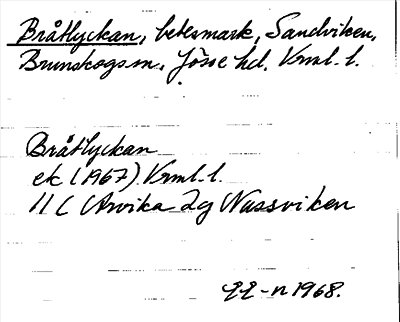 Bråtlyckan, betesmark, Sandviken,
Brunskogs sn, Jösse hd. Vrml. l.
Bråtlyckan
ek (1967) Vrml. l.
11 C Arvika 2g Nussviken
1968.